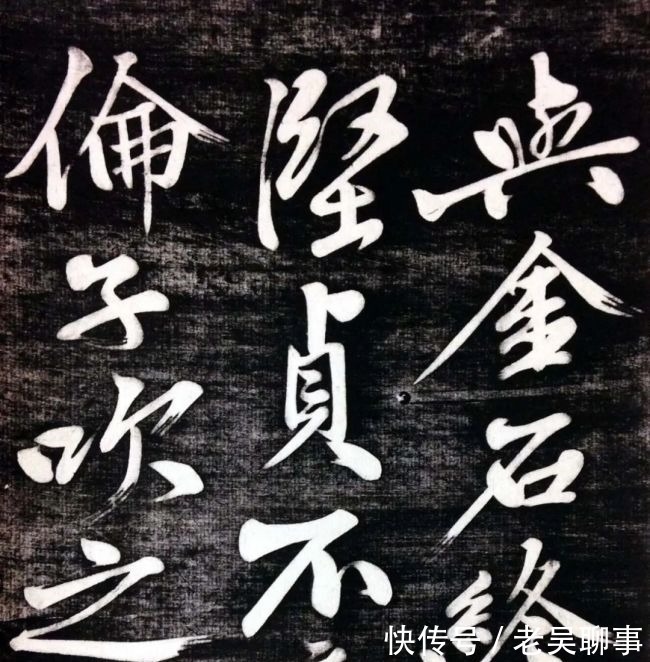 與金石終
堅貞不
倫子吹之
快传号 / 老吴聊事